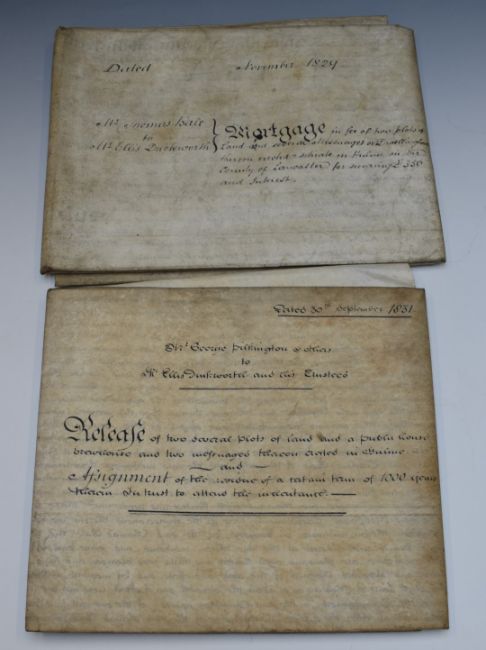 Dated November 1829
Mr. Thomas
to
Mr. Ellis Duckworth
Mortgage in fee of two plots of
Land and several messuages or
thereon erected situate in in the
County of Lancaster for securing £350
and Interest.
Dated 30th September 1831
Mr. George Pilkington & others
to
Mr. Ellis Duckworth and his Trustees
Release of two several plots of land and a public house
brewhouse and two messuages thereon erected in
and
Assignment of the residue of a certain term of 1000 years
therein In trust to attend the inheritance.